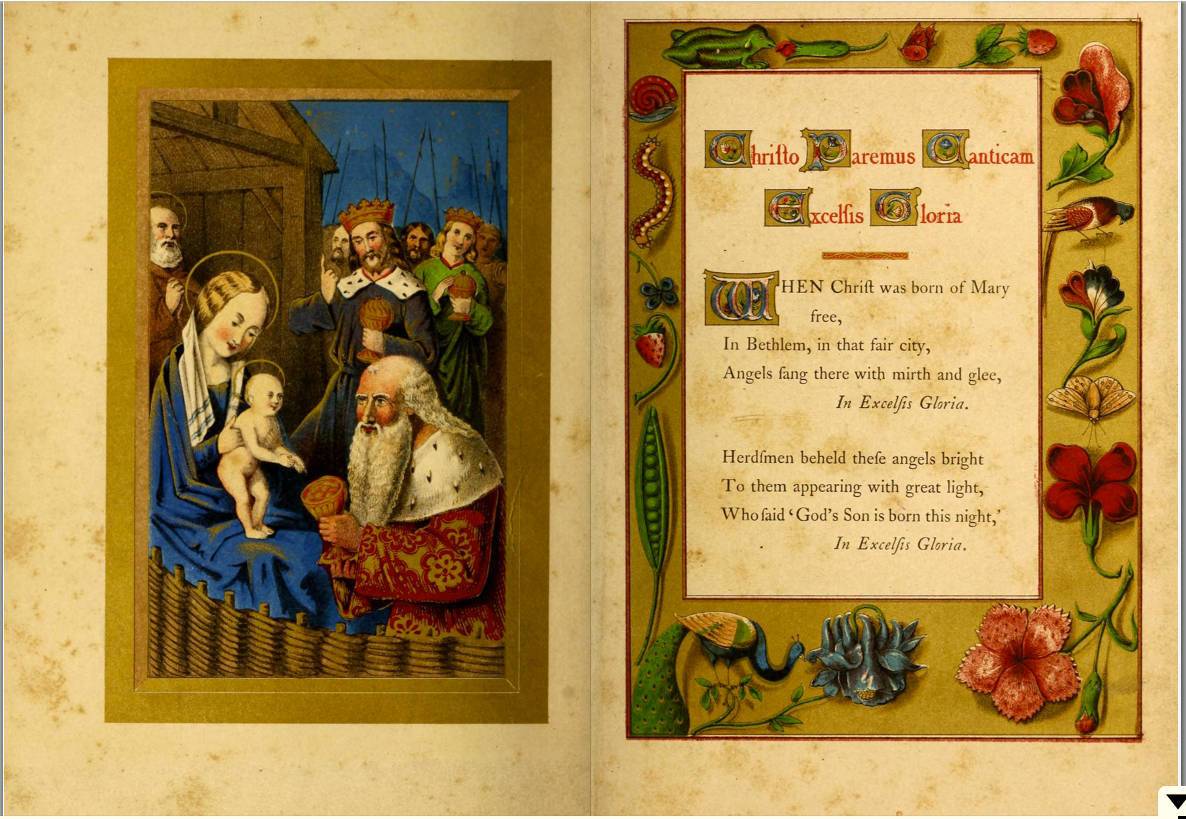 Chriſto Paremus Canticam
Excelſis Gloria
WHEN Chriſt was born of Mary
free,
In Bethlem, in that fair city,
Angels ſang there with mirth and glee,
In Excelſis Gloria.
Herdſmen beheld theſe angels bright
To them appearing with great light,
Who ſaid ‘God's Son is born this night,’
In Excelſis Gloria.